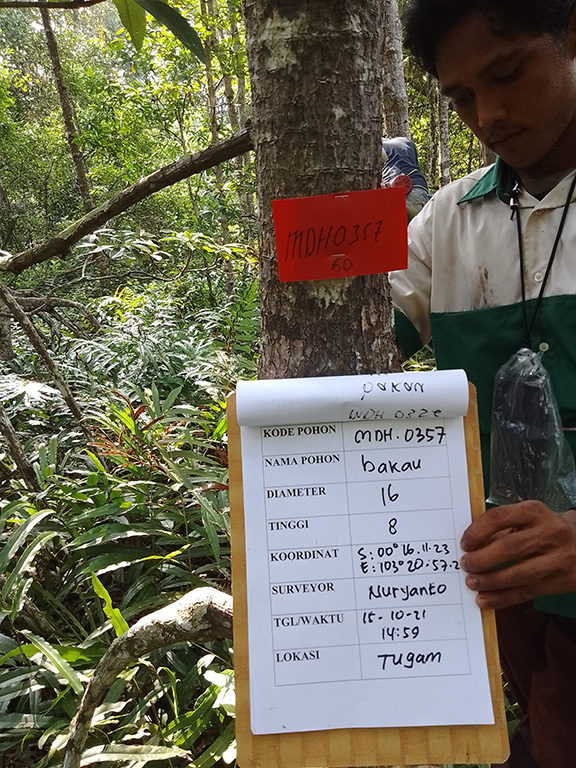 MDH0357
50
pakan
MDH 0328
KODE POHON MDH.0357
NAMA POHON bakau
DIAMETER 16
TINGGI 8
KOORDINAT S: 00° 16. 11. 23
E: 103° 20. 57. 2
SURVEYOR Nuryanto
TGL/WAKTU 15-10-21
14:59
LOKASI Tugam